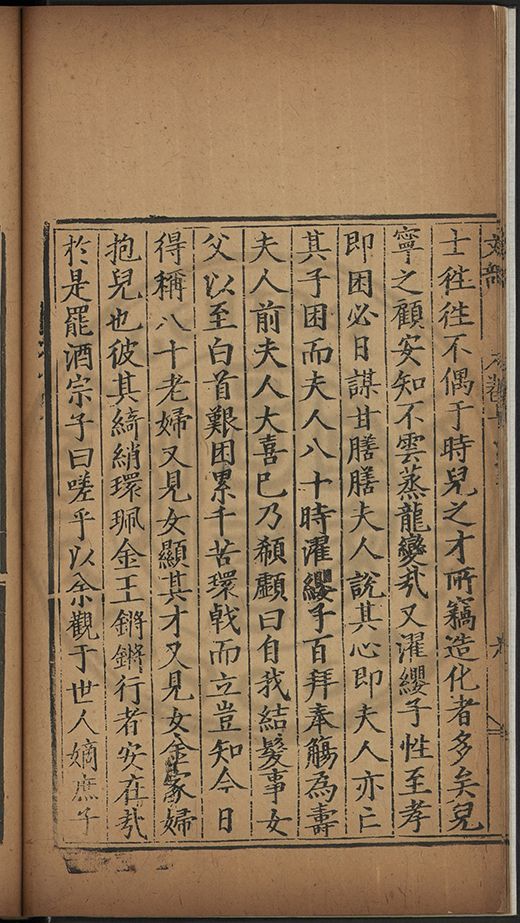 文部
士徃徃不偶于時兒之才所竊造化者多矣兒
寧之顧安知不雲蒸龍變㢤又濯纓子性至孝
即困必日謀甘膳膳夫人說其心即夫人亦亡
其子困而夫人八十時濯纓子百拜奉觴為壽
夫人前夫人大喜巳乃頮顣曰自我結髮事女
父以至白首艱困累千苦環戟而立豈知今日
得稱八十老婦又見女顯其才又見女金冢婦
抱兒也彼其綺綃環珮金王鏘鏘行者安在㢤
於是罷酒宗子曰嗟乎以余觀于世人嫡庶子